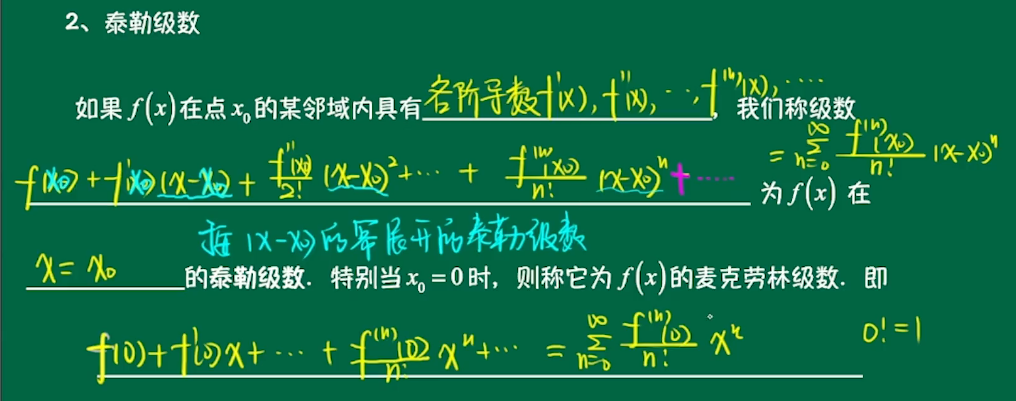 2、泰勒级数
如果 f(x) 在点 x₀ 的某邻域内具有 各阶导数 f'(x), f''(x), ⋯, f⁽ⁿ⁾(x), ⋯ ,我们称级数
f(x₀) + f'(x₀)(x-x₀) + f''(x₀)/2! (x-x₀)² + ⋯ + f⁽ⁿ⁾(x₀)/n! (x-x₀)ⁿ + ⋯⋯ = ∑_{n=0}^{∞} f⁽ⁿ⁾(x₀)/n! (x-x₀)ⁿ 为 f(x) 在
按 (x-x₀) 的幂展开的泰勒级数
x = x₀ 的泰勒级数. 特别当 x₀ = 0 时, 则称它为 f(x) 的麦克劳林级数. 即
f(0) + f'(0)x + ⋯ + f⁽ⁿ⁾(0)/n! xⁿ + ⋯ = ∑_{n=0}^{∞} f⁽ⁿ⁾(0)/n! xⁿ 0! = 1